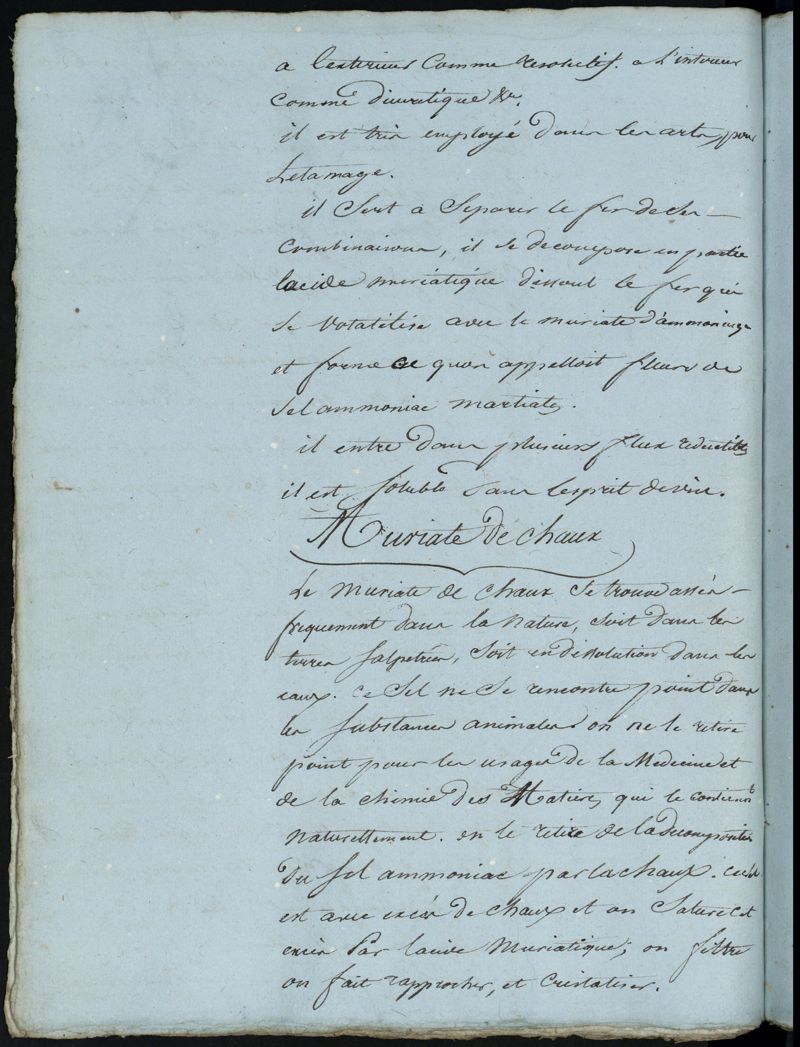 a lexterieur comme resolutif. a l'interieur
comme diuretique &c.
il est tres employé dans les arts, pour
Letamage.
il sert a separer le fer de ses
combinaisons, il se decompose en partie
lacide muriatique dissout le fer qui
se volatilise avec le muriate d'ammoniaque
et forme ce quon appelloit fleurs de
sel ammoniac martiales.
il entre dans plusieurs flux reductibles
il est soluble dans lesprit de vin.
Muriate de chaux
Le muriate de chaux se trouve assés
frequement dans la nature, soit dans les
terres salpetrées, soit en dissolution dans les
eaux. ce sel ne se rencontre point dans
les substances animales on ne le retire
point pour les usages de la Medecine et
de la chimie des Matieres qui le contiennt
naturellement. on le retire de la decomposition
du sel ammoniac par la chaux. ce sel
est avec excés de chaux et on sature cet
excés par lacide muriatique; on filtre
on fait rapprocher, et cristaliser.